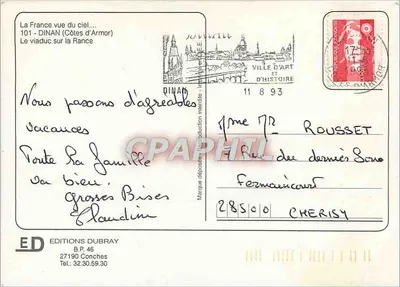 La France vue du ciel...
101 - DINAN (Côtes d'Armor)
Le viaduc sur la Rance
DINAN
VILLE D'ART
ET
D'HISTOIRE
11 8 93
Nous passons d'agréables
vacances
Toute la famille
va bien.
Grosses Bises
Claudine
Mme Mr ROUSSET
Rue du dernier Sou
Fermaincourt
28500 CHERISY
CPARAMA
ED EDITIONS DUBRAY
B.P. 46
27190 Conches
Tel.: 32.30.59.30